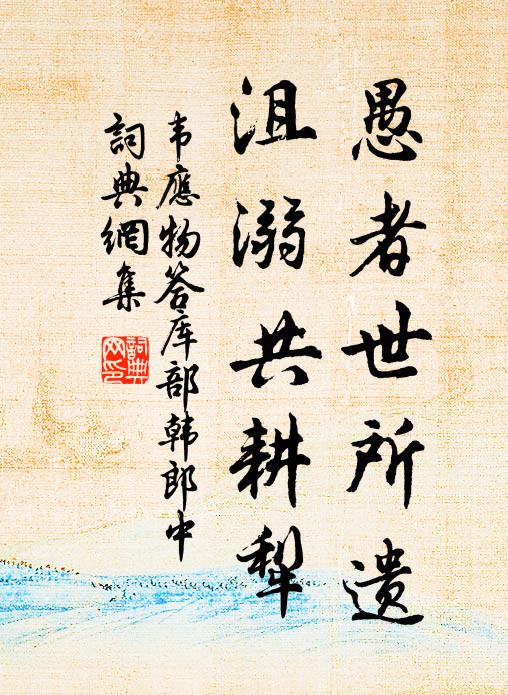 愚者世所遗
沮溺共耕犁
韦應物答库部韩郎中
詞典網集
詞典
网印